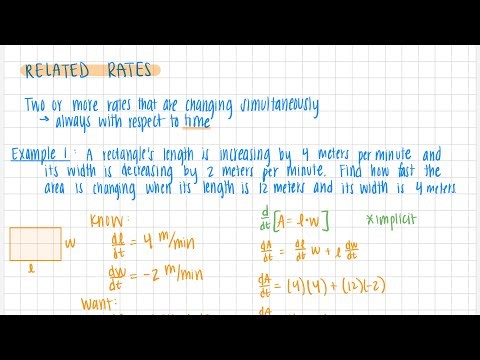 RELATED RATES
Two or more rates that are changing simultaneously
→ always with respect to time
Example 1: A rectangle's length is increasing by 4 meters per minute and
its width is decreasing by 2 meters per minute. Find how fast the
area is changing when its length is 12 meters and its width is 4 meters.
w
l
KNOW:
dl/dt = 4 m/min
dw/dt = -2 m/min
WANT:
d/dt [A = l·w] *implicit
dA/dt = dl/dt w + l dw/dt
dA/dt = (4)(4) + (12)(-2)